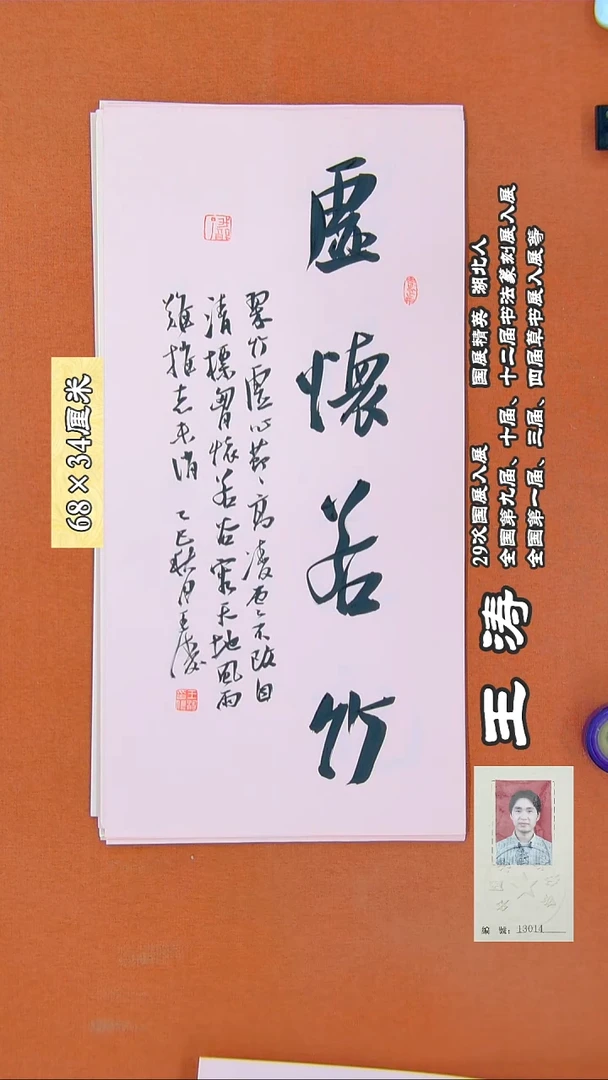 虛懷若竹
翠竹虛心節節高凌雲不改自
清標胸懷若谷容天地風雨
難摧志未消 乙巳秋月王濤
68×34厘米
29次国展入展 国展精英 湖北人
全国第九届、十届、十二届书法篆刻展入展
全国第一届、三届、四届草书展入展等
王涛
編號：13014